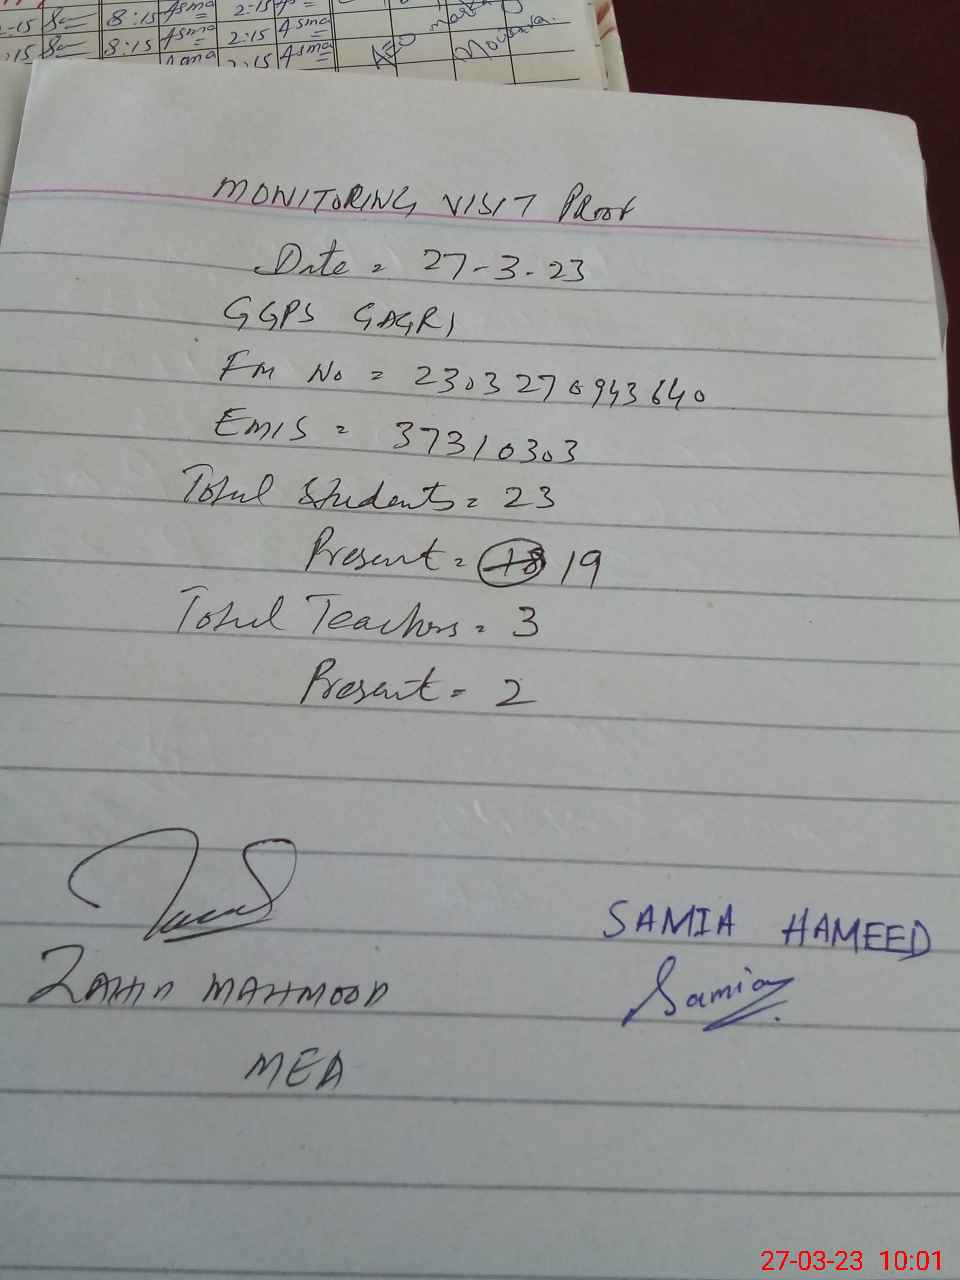 2:15 8:15 Asma 2:15 Asma
:15 8:15 Asma 2:15 Asma
2:15 Asma
AEO
MONITORING VISIT PROOF
Date = 27-3-23
GGPS GAGRI
Fm No = 2303270943640
EMIS = 37310303
Total Students = 23
Present = 18 19
Total Teachers = 3
Present = 2
SAMIA HAMEED
ZAHID MAHMOOD
Samia
MEA
27-03-23 10:01